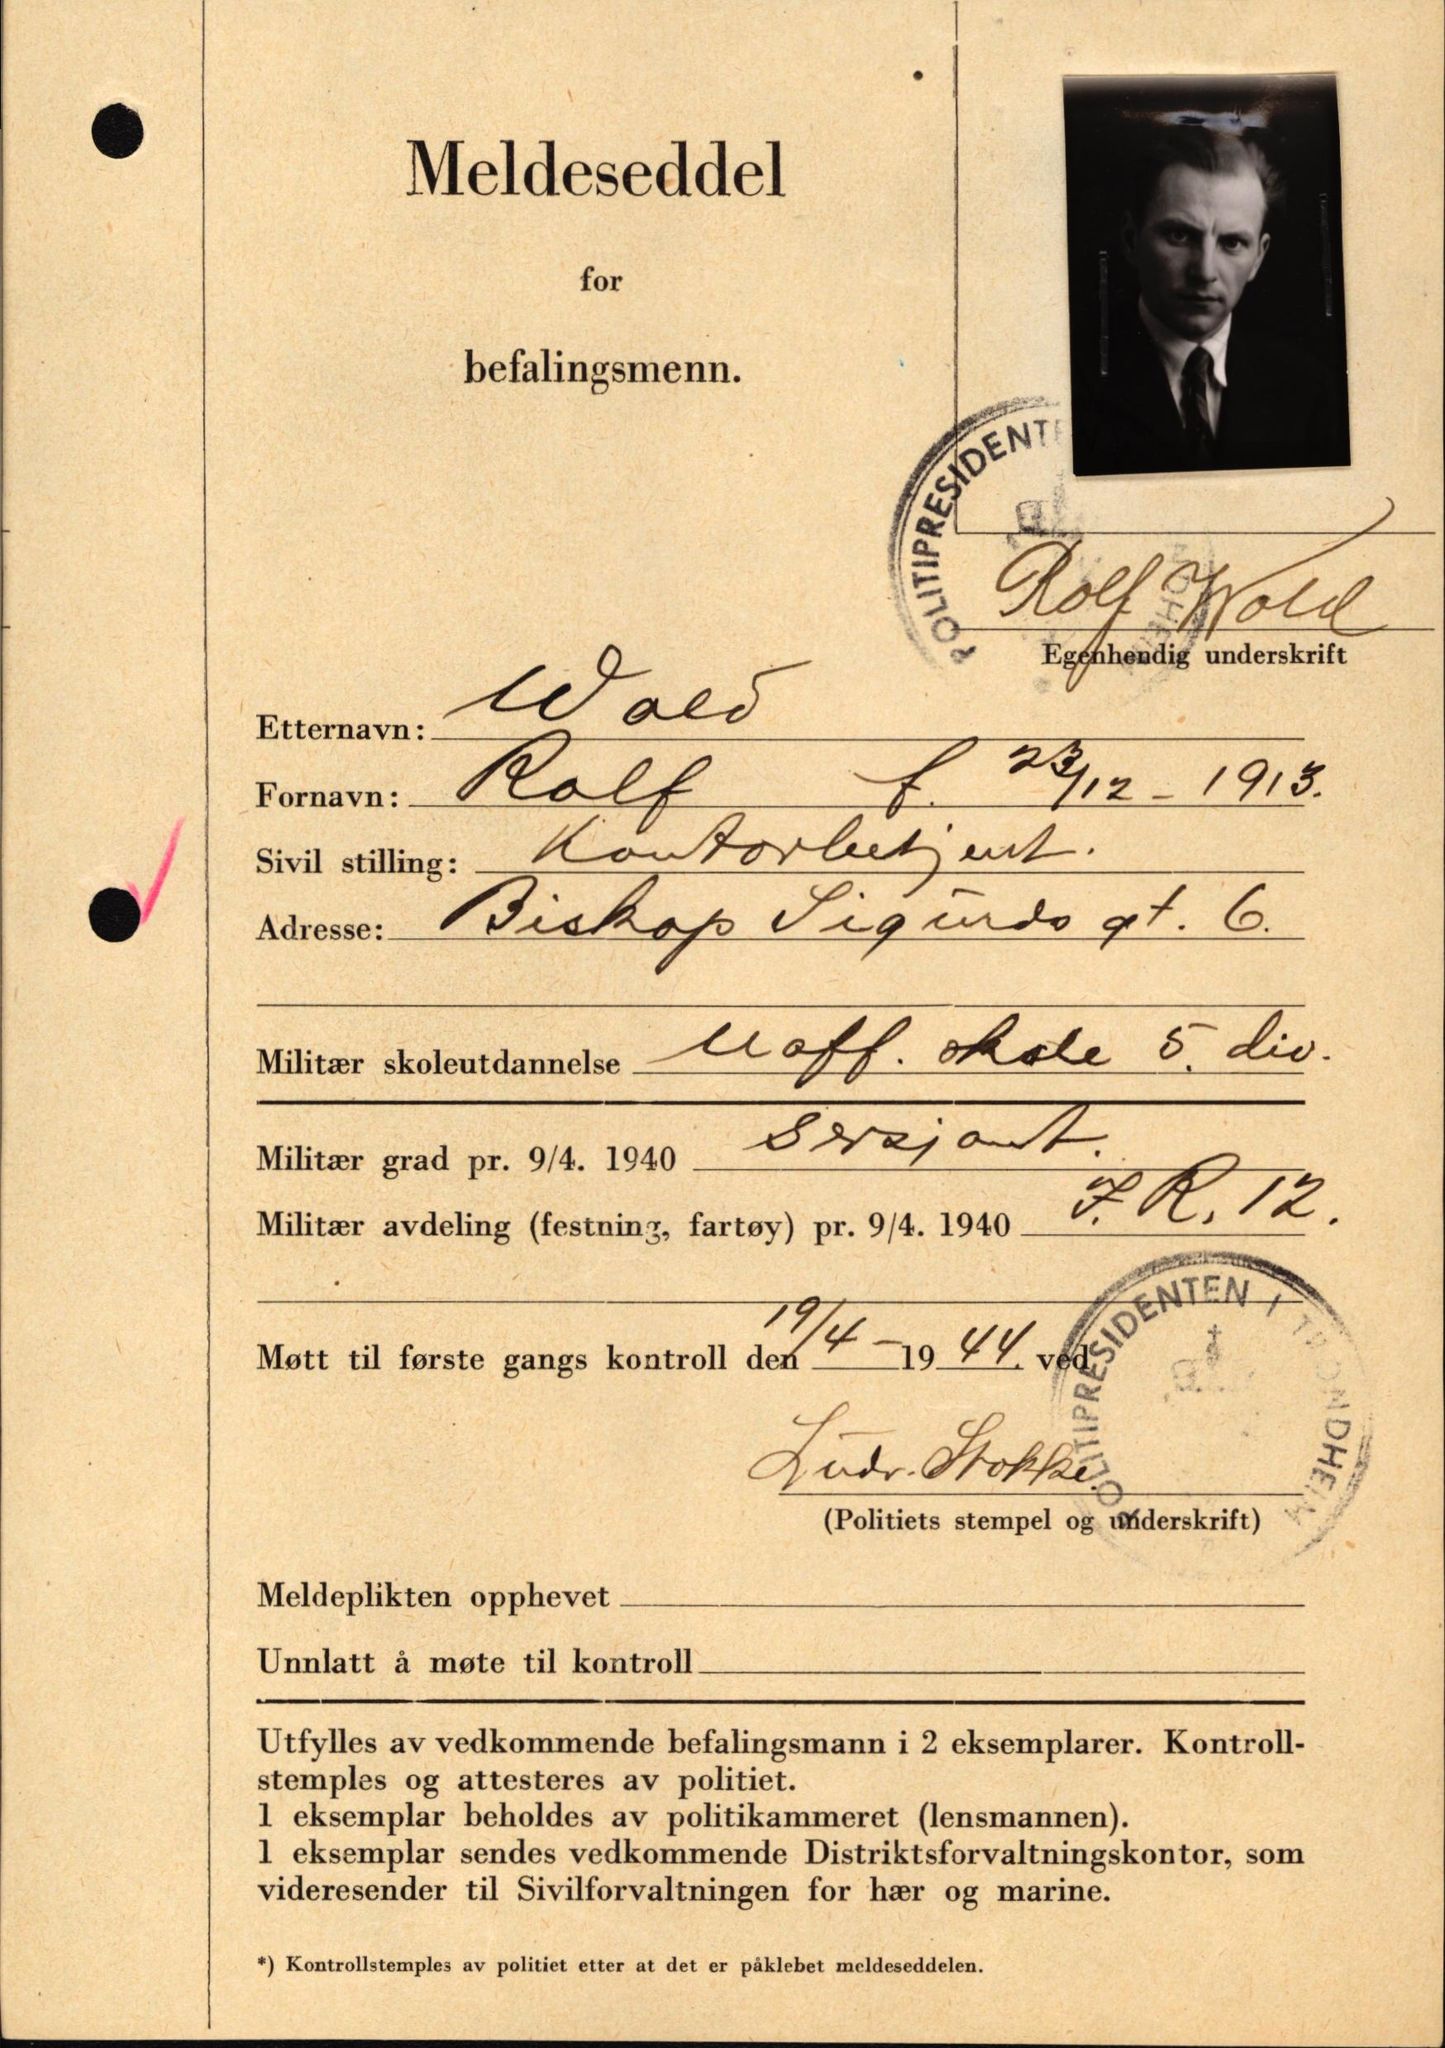 Meldeseddel
for
befalingsmenn.
POLITIPRESIDENTE
Rolf Wold
Egenhendig underskrift
Etternavn: Wold
Fornavn: Rolf f. 23/12 - 1913.
Sivil stilling: Kontorbetjent.
Adresse: Biskop Sigurds gt. 6.
Militær skoleutdannelse Uoff. skole 5. div.
Militær grad pr. 9/4. 1940 Sersjant.
Militær avdeling (festning, fartøy) pr. 9/4. 1940 I.R. 12.
Møtt til første gangs kontroll den 19/4 - 1944. ved
POLITIPRESIDENTEN I TRONDHEIM
Ludv. Stokke.
(Politiets stempel og underskrift)
Meldeplikten opphevet
Unnlatt å møte til kontroll
Utfylles av vedkommende befalingsmann i 2 eksemplarer. Kontroll-
stemples og attesteres av politiet.
1 eksemplar beholdes av politikammeret (lensmannen).
1 eksemplar sendes vedkommende Distriktsforvaltningskontor, som
videresender til Sivilforvaltningen for hær og marine.
*) Kontrollstemples av politiet etter at det er påklebet meldeseddelen.